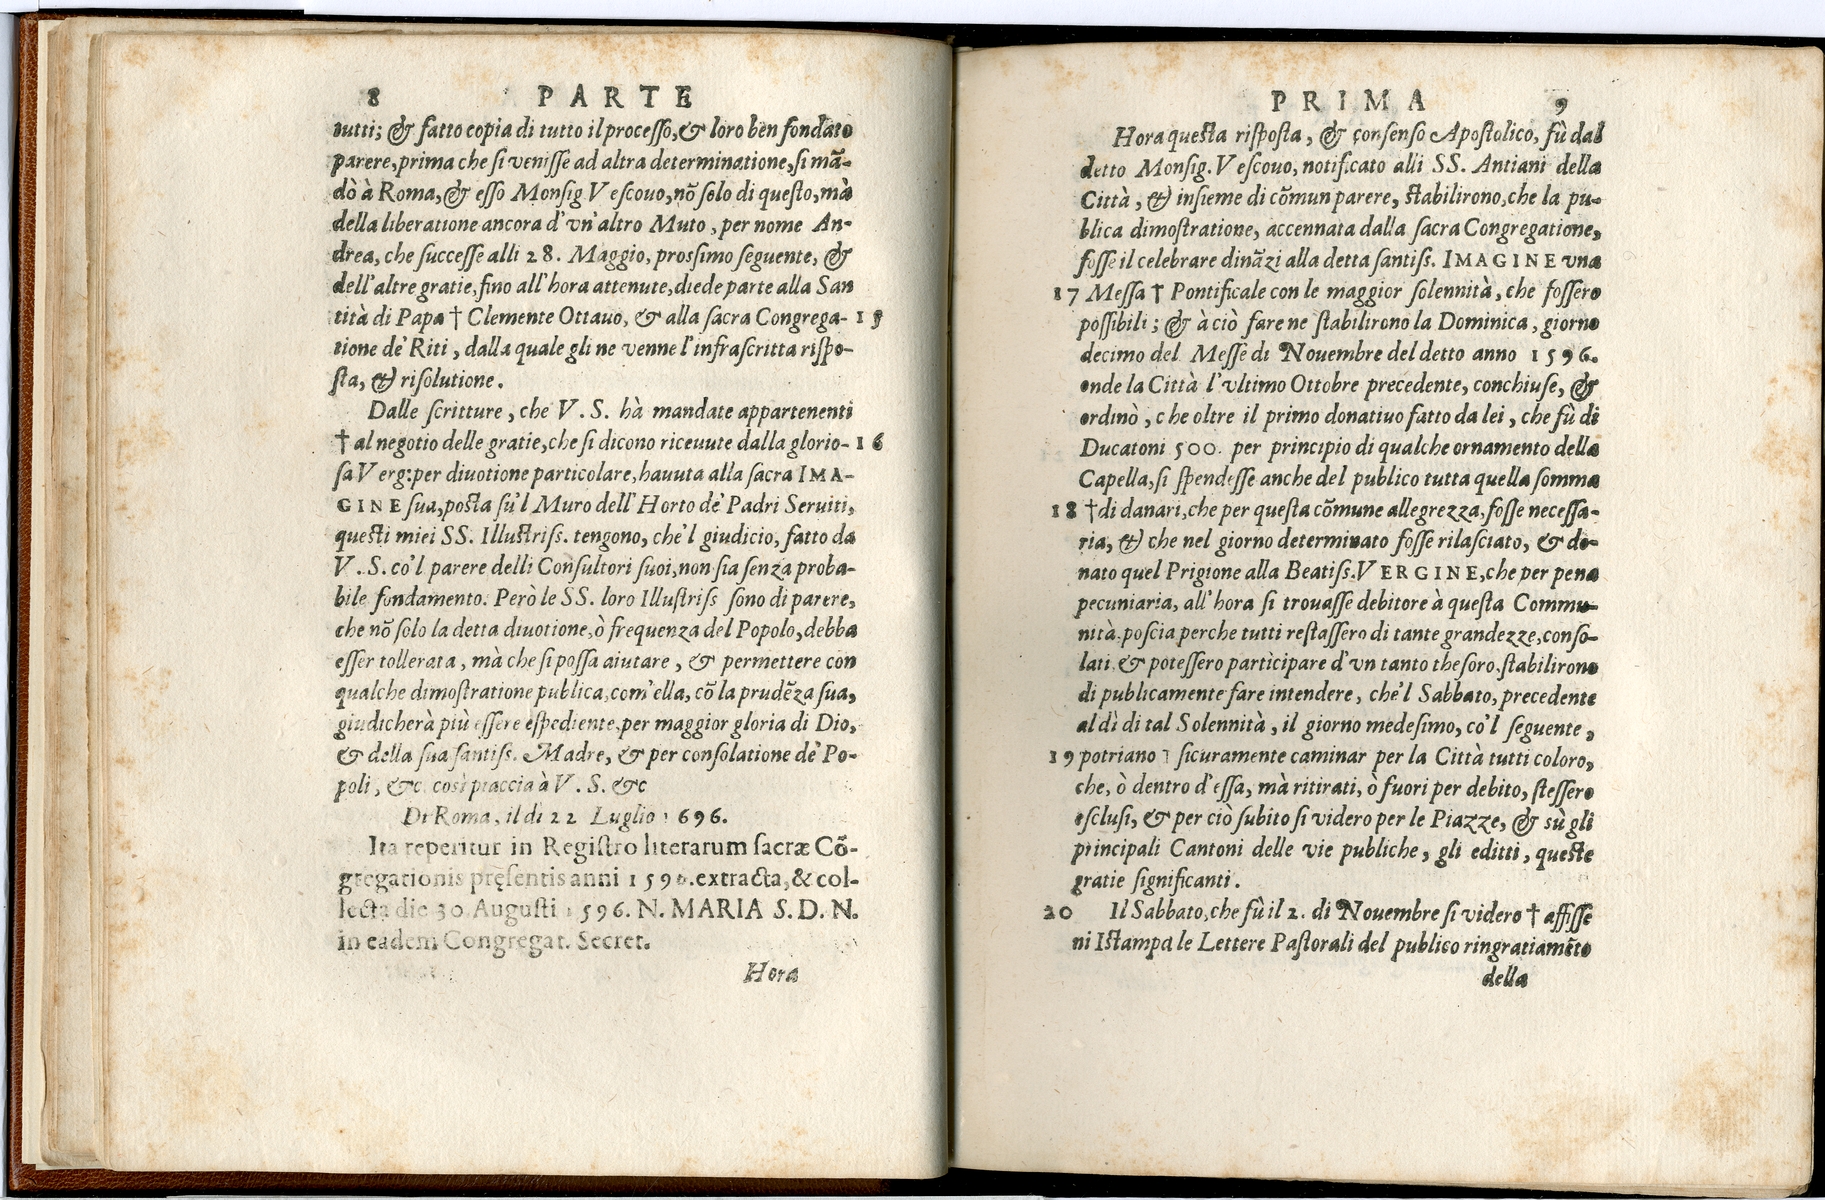 8 PARTE
tutti; & fatto copia di tutto il processo, & loro ben fondato
parere, prima che si venisse ad altra determinatione, si mã-
dò à Roma, & esso Monsig Vescouo, nõ solo di questo, mà
della liberatione ancora d'vn'altro Muto, per nome An-
drea, che successe alli 28. Maggio, prossimo seguente, &
dell'altre gratie, fino all'hora attenute, diede parte alla San
tità di Papa † Clemente Ottauo, & alla sacra Congrega- 15
tione de' Riti, dalla quale gli ne venne l'infrascritta rispo-
sta, & risolutione.
Dalle scritture, che V. S. hà mandate appartenenti
† al negotio delle gratie, che si dicono riceuute dalla glorio- 16
sa Verg: per diuotione particolare, hauuta alla sacra IMA-
GINE sua, posta sù'l Muro dell'Horto de' Padri Seruiti,
questi miei SS. Illustriss. tengono, che'l giudicio, fatto da
V. S. co'l parere delli Consultori suoi, non sia senza proba-
bile fondamento. Però le SS. loro Illustriss sono di parere,
che nõ solo la detta diuotione, ò frequenza del Popolo, debba
esser tollerata, mà che si possa aiutare, & permettere con
qualche dimostratione publica, com'ella, cõ la prudẽza sua,
giudicherà più essere espediente, per maggior gloria di Dio,
& della sua santiss. Madre, & per consolatione de' Po-
poli, &c. così piaccia à V. S. &c
Di Roma, il di 22 Luglio 1696.
Ita reperitur in Registro literarum sacræ Cõ-
gregationis pręsentis anni 1596. extracta, & col-
lecta die 30 Augusti 1596. N. MARIA S. D. N.
in eadem Congregat. Secret.
Hora
PRIMA 9
Hora questa risposta, & consenso Apostolico, fù dal
detto Monsig. Vescouo, notificato alli SS. Antiani della
Città, & insieme di cõmun parere, stabilirono, che la pu-
blica dimostratione, accennata dalla sacra Congregatione,
fosse il celebrare dinãzi alla detta santiss. IMAGINE vna
17 Messa † Pontificale con le maggior solennità, che fossero
possibili; & à ciò fare ne stabilirono la Dominica, giorno
decimo del Messe di Nouembre del detto anno 1596.
onde la Città l'vltimo Ottobre precedente, conchiuse, &
ordinò, che oltre il primo donatiuo fatto da lei, che fù di
Ducatoni 500. per principio di qualche ornamento della
Capella, si spendesse anche del publico tutta quella somma
18 † di danari, che per questa cõmune allegrezza, fosse necessa-
ria, & che nel giorno determinato fosse rilasciato, & do-
nato quel Prigione alla Beatiss. VERGINE, che per pena
pecuniaria, all'hora si trouasse debitore à questa Commu-
nità. poscia perche tutti restassero di tante grandezze, conso-
lati, & potessero participare d'vn tanto thesoro, stabilirono
di publicamente fare intendere, che'l Sabbato, precedente
al dì di tal Solennità, il giorno medesimo, co'l seguente,
19 potriano sicuramente caminar per la Città tutti coloro,
che, ò dentro d'essa, mà ritirati, ò fuori per debito, stessero
esclusi, & per ciò subito si videro per le Piazze, & sù gli
principali Cantoni delle vie publiche, gli editti, queste
gratie significanti.
20 Il Sabbato, che fù il 2. di Nouembre si videro † affisse
ni Istampa le Lettere Pastorali del publico ringratiamẽto
della